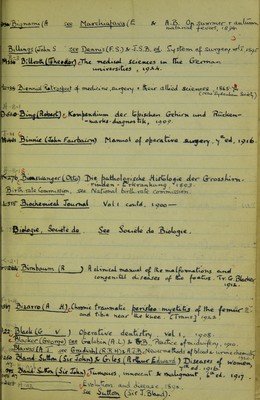 Bignami (A see Marchiafava (E & A.B. On summer & autumn
malarial fever, 1894.
Billings (John S see Dennis (F.S.) & J.S.B. ed System of surgery, vol 1, 1895
Billroth (Theodor) The medical sciences in the German
universities, 1924.
Biennial Retrospect of medicine, surgery, & their allied sciences, 1865-
(New Sydenham Society)
Bing (Robert) Kompendium der topischen Gehirn und Rücken-
-marks-diagnostik, 1909
Binnie (John Fairbairn) Manual of operative surgery. 7th ed, 1916.
Binswanger (Otto) Die pathologische Histologie der Grosshirn-
rinden-Erkrankung, 1893.
Birth rate Commission, see National birth-rate commission
Biochemical Journal Vol 1 could. 1900—
Biologie, Société de. See Société de Biologie.
Birnbaum (R ) A clinical manual of the malformations and
congenital diseases of the foetus. Tr. G. Blacker
1912.
Bizarro (A H), Chronic traumatic periosteo-myelitis of the femur
and tibia near the knee [Trans] 1922.
Black (G V ) Operative dentistry vol 1. 1908.
Blacker (George) see Galabin (A.L) & G.B. Practice of midwifery, 1910.
Bland Sutton (Sir John) & Giles (Arthur Edward) Diseases of women,
7th ed. 1916.
Bland Sutton (Sir John) Tumours, innocent & malignant, 6th ed. 1917.
Evolution and disease, 1890
see Sutton (Sir J. Bland).